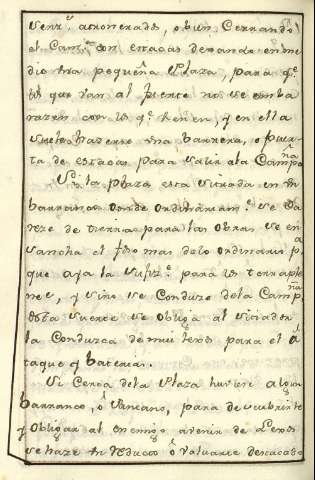 al Camº con estacas dexando en me
dio una pequeña Plaza, para qe
los que van al puente no se emba
razen con los qe vienen, y en ella
suele hazerse una barrera, o puer
ta de estacas para salir ala Campña
Si la plaza esta situada en un
barranco donde ordinariamte se ca
reze de tierra para las obras, se en
sancha el foso mas delo ordinario pa
que aja la sufizte para los terraple
nes, y sino se conduze dela Campña
desta suerte se obliga al sitiador
la conduzca de mui lexos para el a
taque y baterias.
Si cerca dela Plaza huviere algun
barranco, ò para descubrirle
y obligar al enemigo avenir de lexos
se haze un reducto ò valuarte destacado